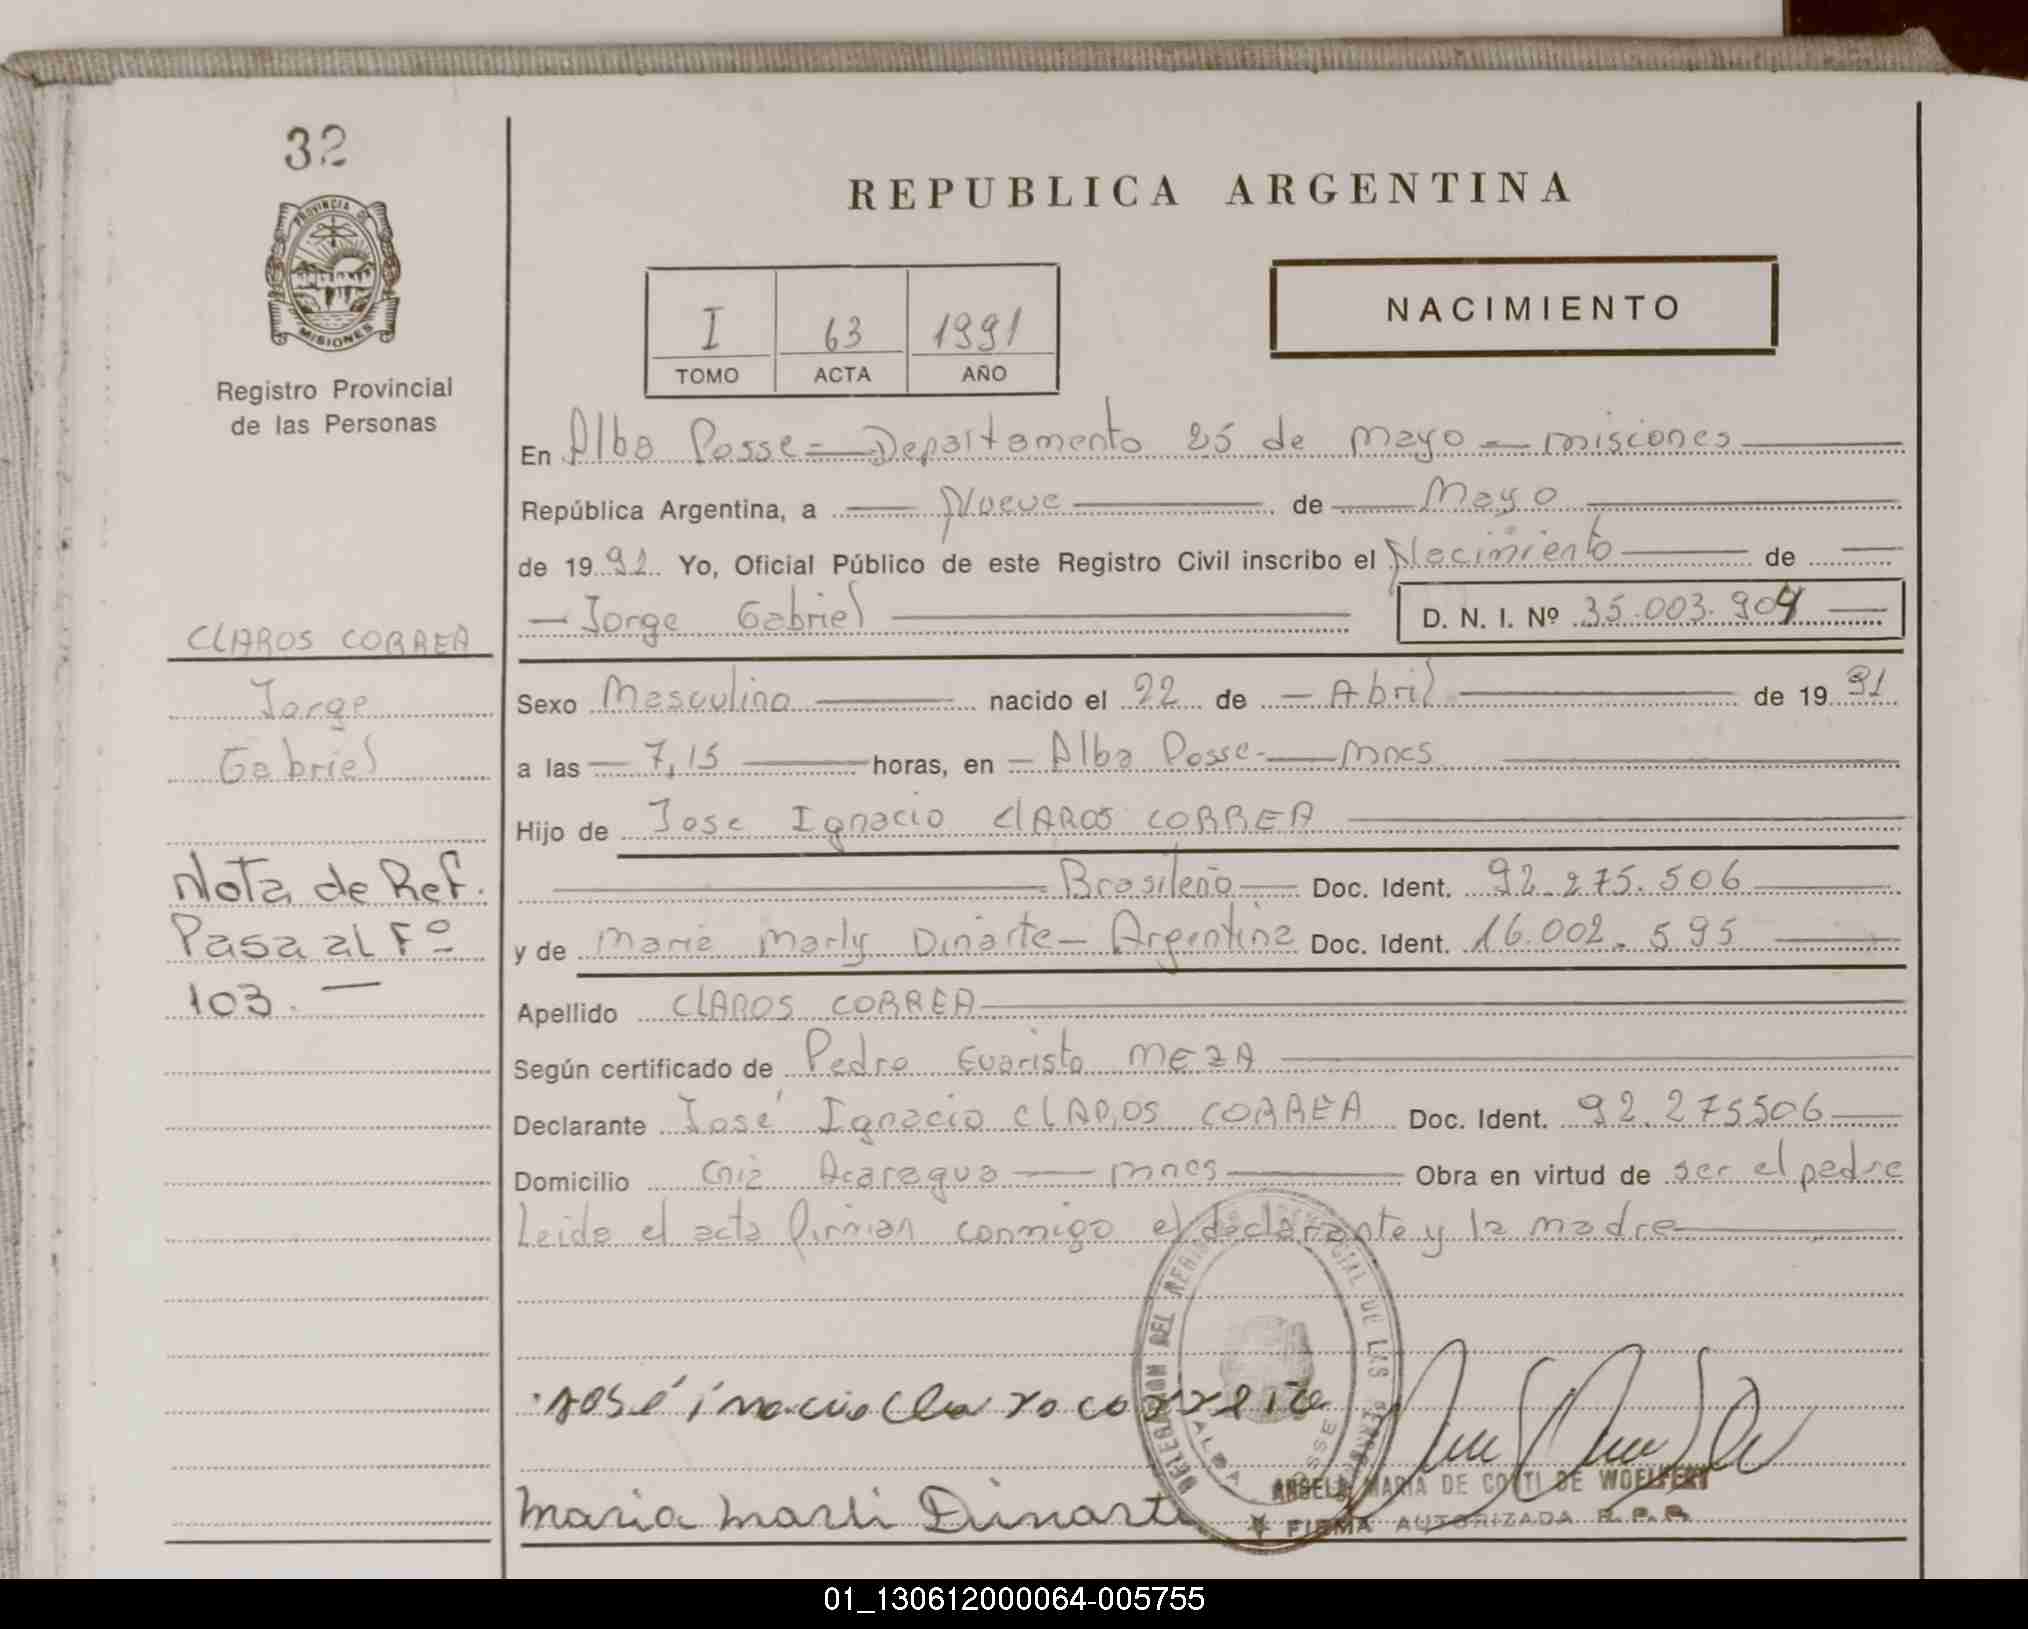 32
PROVINCIA DE
MISIONES
Registro Provincial
de las Personas
REPUBLICA ARGENTINA
NACIMIENTO
I 63 1991
TOMO ACTA AÑO
En Alba Posse = Departamento 25 de Mayo = misiones
República Argentina, a Nueve de Mayo
de 19 91 Yo, Oficial Público de este Registro Civil inscribo el Nacimiento de
Jorge Gabriel D. N. I. Nº 35.003.904
CLAROS CORREA
Jorge
Gabriel
Nota de Ref.
Pasa al Fº
103.—
Sexo Masculino nacido el 22 de Abril de 19 91
a las 7,15 horas, en Alba Posse- mnes
Hijo de Jose Ignacio CLAROS CORREA
Brasileño Doc. Ident. 92.275.506
y de Maria Marly Dinarte - Argentina Doc. Ident. 16.002.595
Apellido CLAROS CORREA
Según certificado de Pedro Evaristo MEZA
Declarante José Ignacio CLAROS CORREA Doc. Ident. 92.275506
Domicilio Cnia Acaragua mnes Obra en virtud de ser el padre
Leida el acta firman conmigo el declarante y la madre
DELEGACION DEL REGISTRO PROVINCIAL DE LAS PERSONAS
ALBA POSSE
José inacio Claro correia
Maria Marli Dinarte
ANGELA MARIA DE CONTI DE WOELFERT
FIRMA AUTORIZADA R.P.P.
01_130612000064-005755